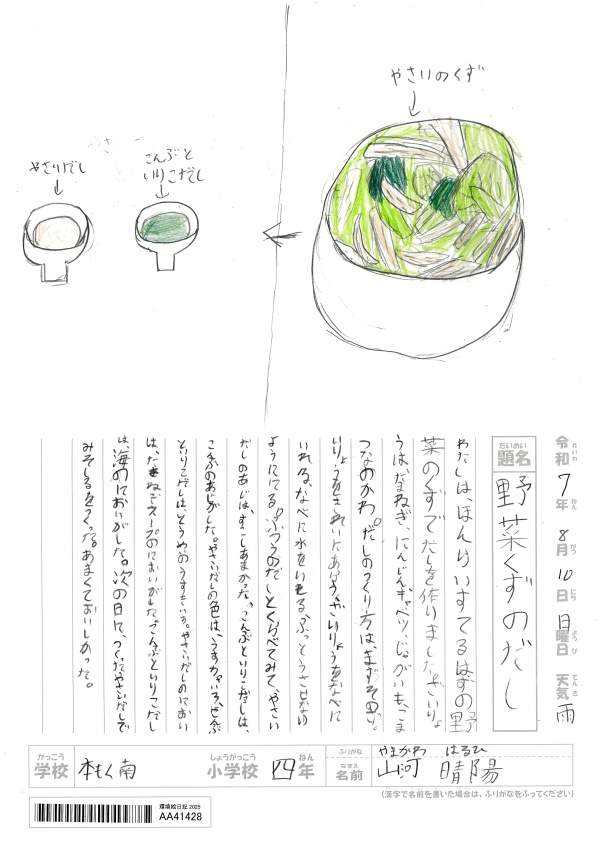 やさいのくず
こんぶと
いりこだし
やさいだし
令和7年8月10日日曜日 天気雨
れいわ ねん がつ にち ようび てんき
だいめい
題名
野菜くずのだし
わたしは、ほんらいすてるはずの野
菜のくずでだしを作りました。ざいりょ
うは、たまねぎ、にんじん、キャベツ、じゃがいも、ごま
つなのかわ。だしのつくり方は、まずそのざい
りょうをきれいにあらう。ざいりょうをなべに
いれる。なべに水をいれる。ふっとうさせない
ようににる。ふつうのだしとくらべてみて、やさい
だしのあじは、すこしあまかった。こんぶといりこだしは、
こんぶのあじがした。やさいだしの色は、うすちゃいろ、こんぶ
といりこだしは、とうめいのうすきいろ。やさいだしのにおい
は、たまねぎスープのにおいがした。こんぶといりこだし
は、海のにおいがした。次の日に、つくったやさいだしで
みそしるをつくった。あまくておいしかった。
がっこう
学校
本もく南
しょうがっこう
小学校
四
ねん
年
ふりがな
やまかわ はるひ
なまえ
名前
山河 晴陽
(漢字で名前を書いた場合は、ふりがなをふってください)
環境絵日記 2025
AA41428